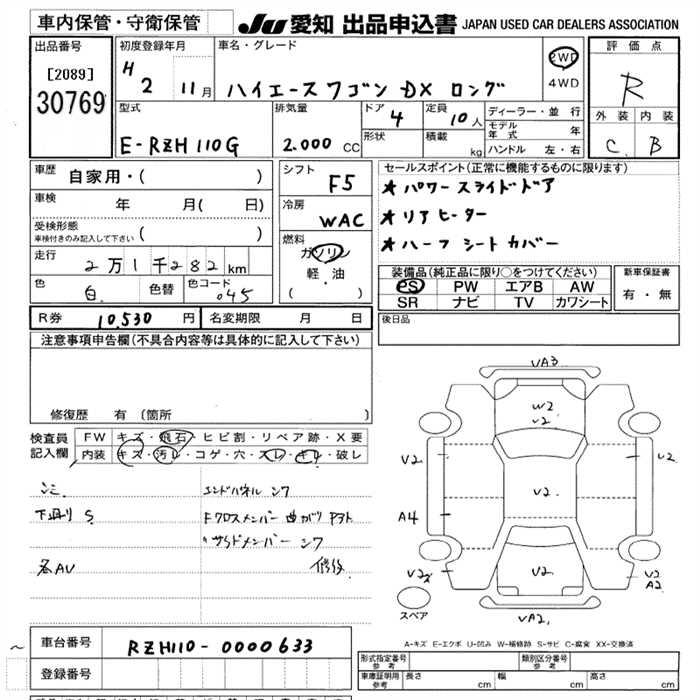 車内保管・守衛保管
JU 愛知 出品申込書 JAPAN USED CAR DEALERS ASSOCIATION
出品番号
[2089]
30769
初度登録年月
H 2 11月
車名・グレード
ハイエースワゴン DX ロング
2WD
4WD
評価点
R
外装 内装
C B
型式
E-RZH110G
排気量
2.000 CC
ドア 4
形状
定員 10人
積載 kg
ディーラー・並行
モデル年式 年
ハンドル 左・右
車歴 自家用・( )
車検 年 月( 日)
受検形態
車検付きのみ記入して下さい ( )
走行 2万1千282km
色 白 色替 色コード 045
シフト F5
冷房 WAC
燃料
ガソリン
軽・油
( )
セールスポイント(正常に機能するものに限ります)
★パワースライドドア
★リアヒーター
★ハーフシートカバー
装備品(純正品に限り○をつけてください)
PS PW エアB AW
SR ナビ TV カワシート
新車保証書
有・無
R券 10,530円 名変期限 月 日
後日品
注意事項申告欄(不具合内容等は具体的に記入して下さい)
修復歴 有(箇所 )
検査員記入欄
FW キズ・飛石・ヒビ割・リペア跡・X要
内装 キズ・汚レ・コゲ・穴・スレ・キレ・破レ
下廻り S
各AU
エンドパネル シワ
Fクロスメンバー 曲がり
サイドメンバー シワ
修後
VA3
W2
V2
V2
V2
V2
A4
V2
V2
V2
A2
VA2
スペア
A-キズ E-エクボ U-凹み W-補修跡 S-サビ C-腐食 XX-交換済
車台番号 RZH110-0000633
登録番号
形式指定番号 参考
類別区分番号 参考
車庫証明用 参考
長さ cm 幅 cm 高さ cm